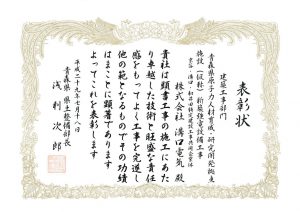 表彰状
建築工事部門
青森県原子力人材育成・研究開発拠点
施設(仮称)新築強電設備工事
株式会社 溝口電気 殿
貴社は頭書工事の施工にあた
り卓越した技術と旺盛な責任
感をもってよく工事を完遂し
他の範となるものでその功績
はまことに顕著であります
よってこれを表彰します
平成二十九年七月十八日
青森県 県土整備部長
浅利次郎